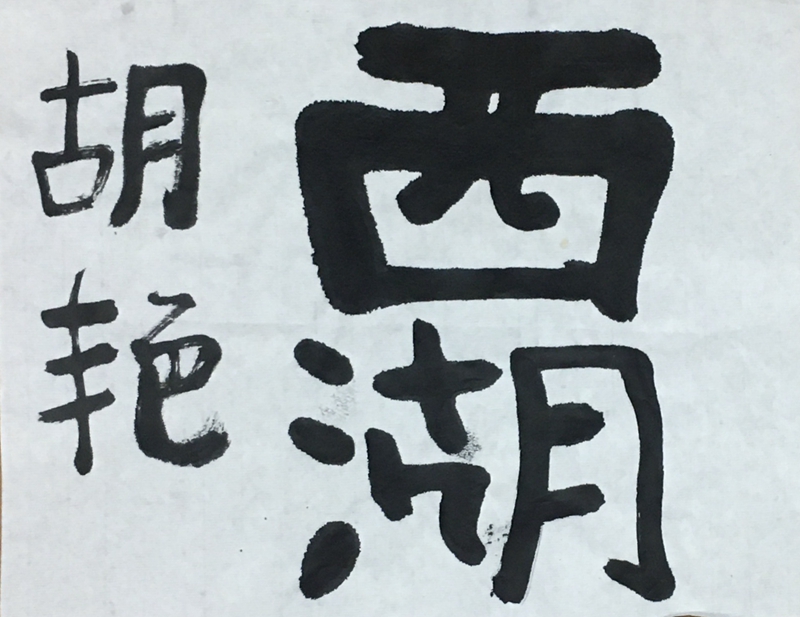 西湖
胡艳